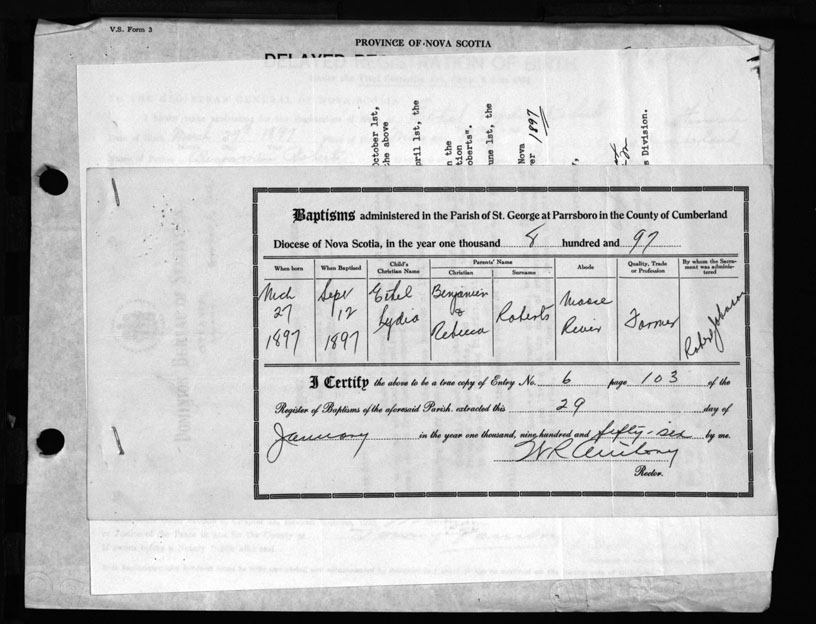 V.S. Form 3
PROVINCE OF NOVA SCOTIA
DELAYED REGISTRATION OF BIRTH
October 1st,
the above
April 1st, the
n the
tion
oberts".
une 1st, the
Nova
er 1897
s Division.
Baptisms administered in the Parish of St. George at Parrsboro in the County of Cumberland
Diocese of Nova Scotia, in the year one thousand 8 hundred and 97
When born When Baptised Child's Christian Name Parents' Name Christian Surname Abode Quality, Trade or Profession By whom the Sacrament was administered
Mch 27 1897 Sept 12 1897 Ethel Lydia Benjamin & Rebecca Roberts Moose River Farmer Robert Johnson
I Certify the above to be a true copy of Entry No. 6 page 103 of the
Register of Baptisms of the aforesaid Parish, extracted this 29 day of
January in the year one thousand, nine hundred and fifty-six by me.
Rector.